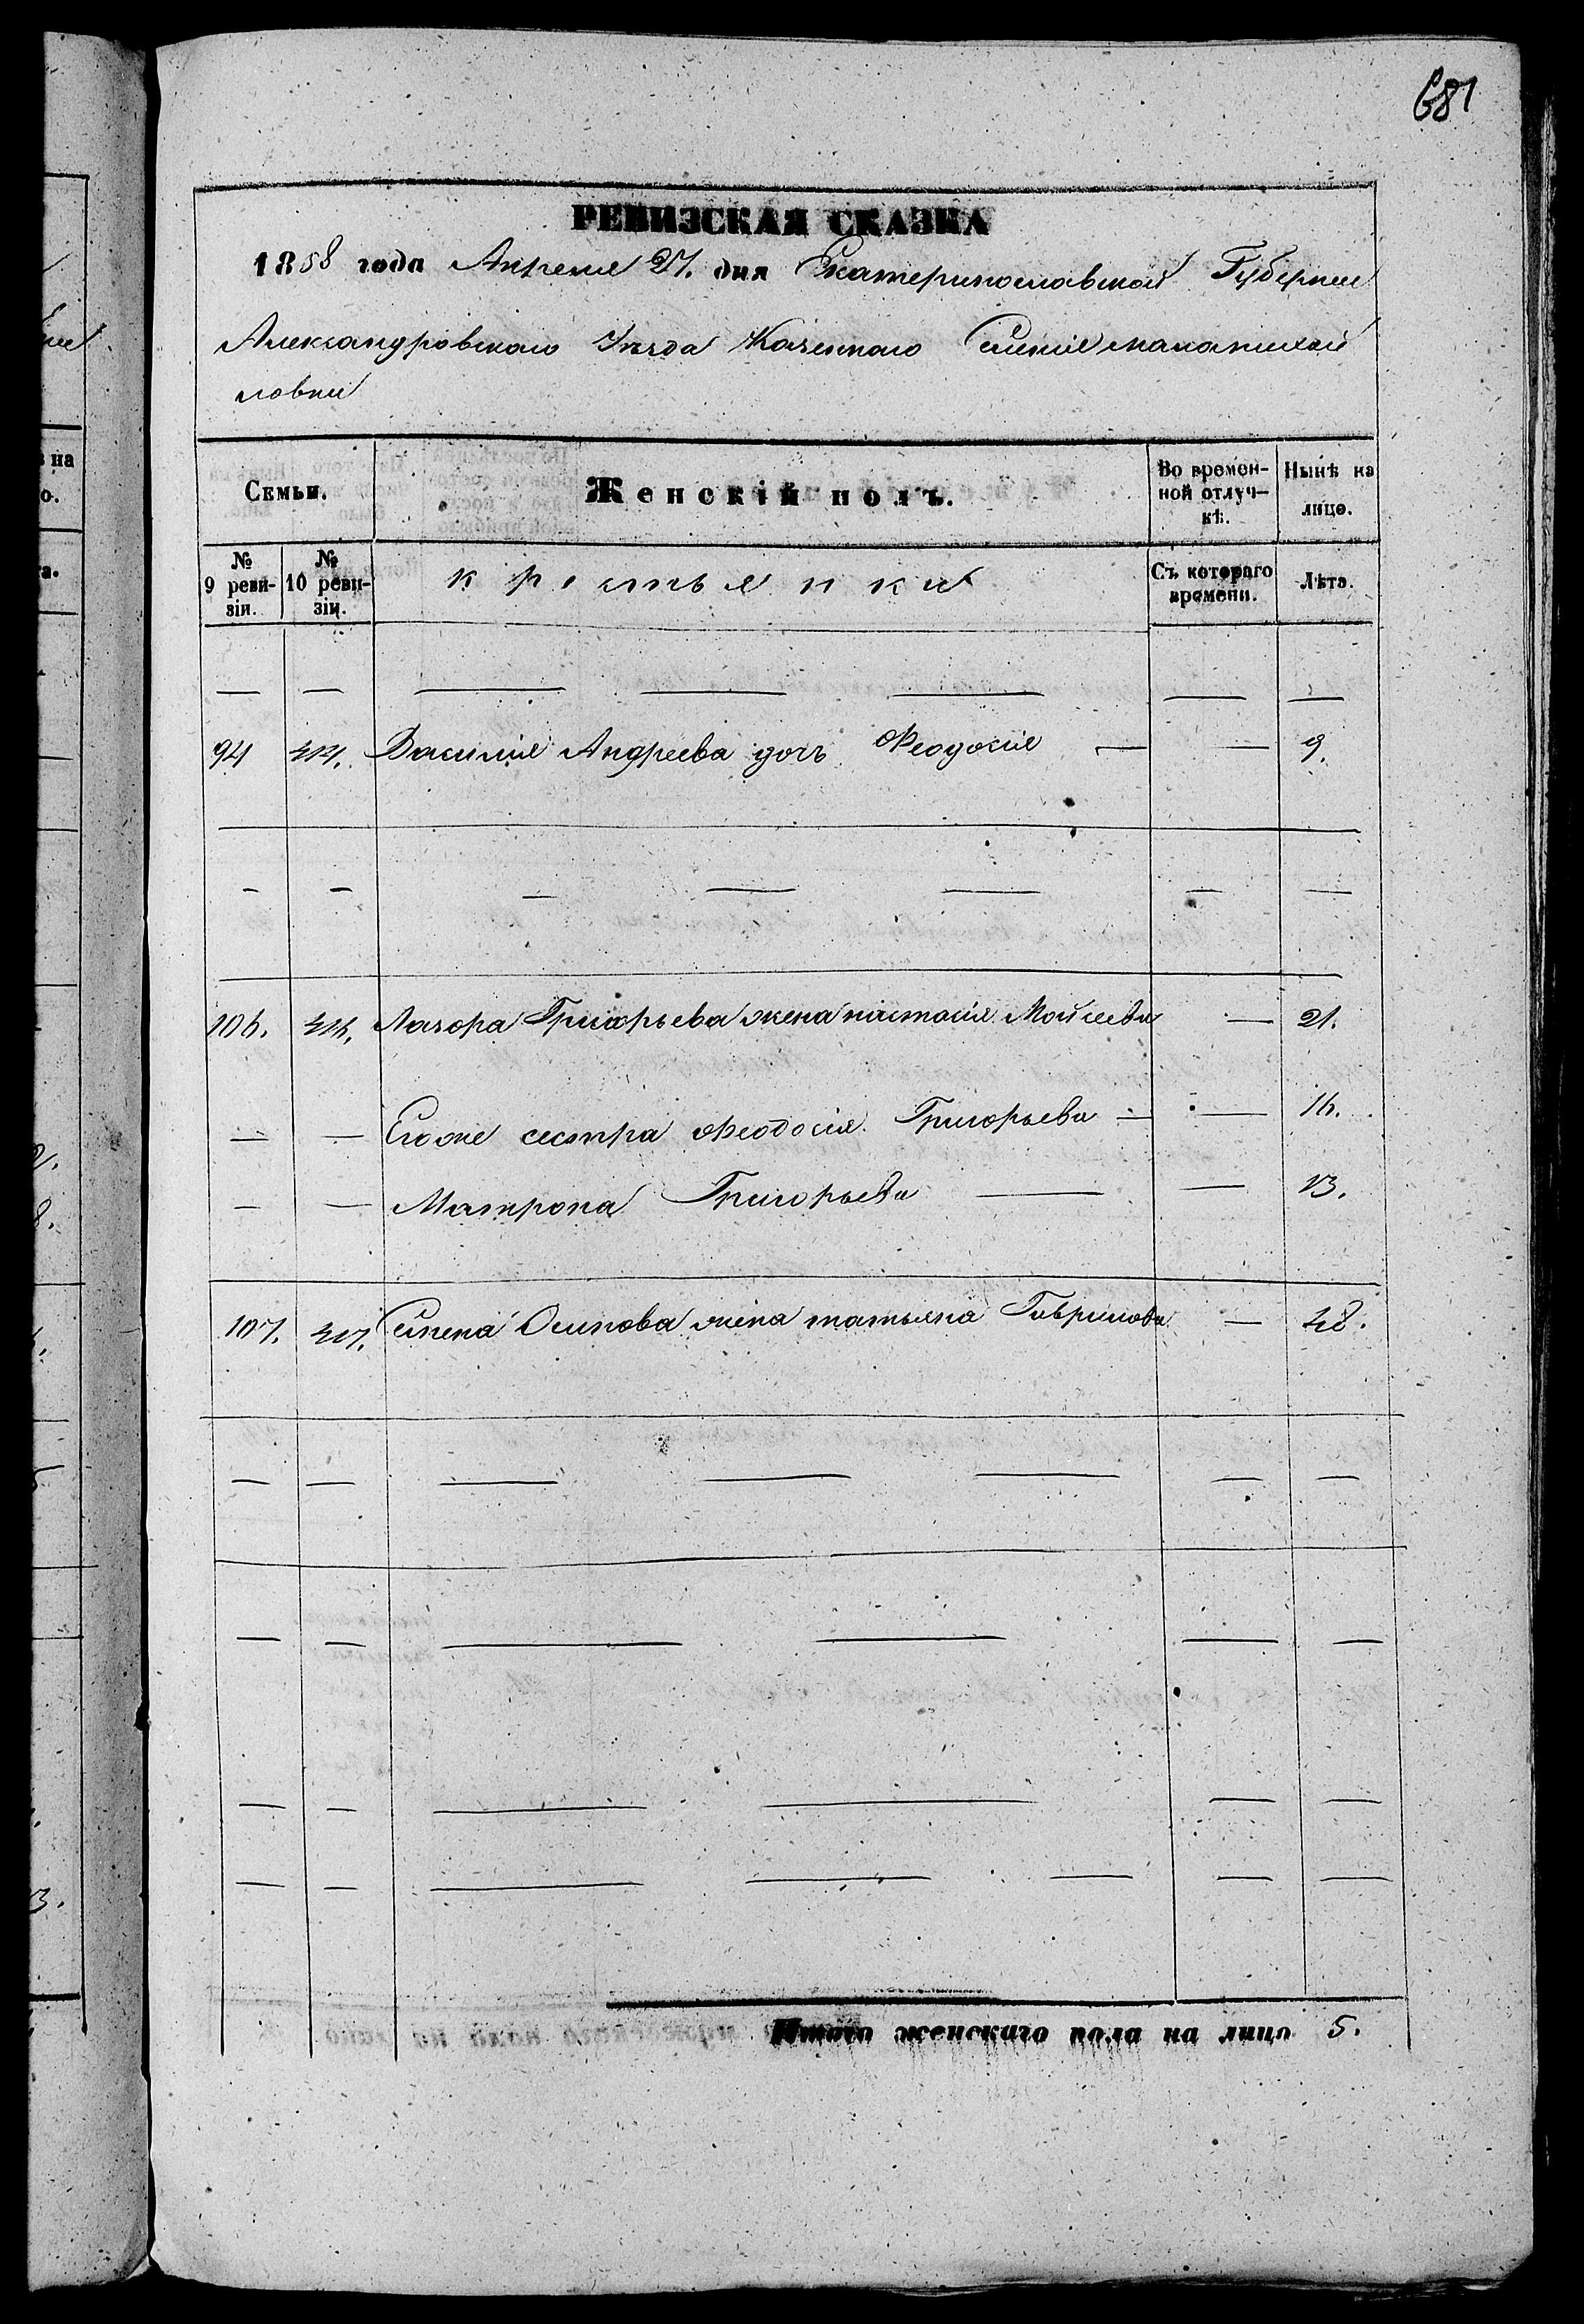 681
РЕВИЗСКАЯ СКАЗКА
1858 года Апреля 27. дня Екатеринославской Губернии
Александровскаго Уезда Казеннаго Селения
ловки
Семьи. Женскій полъ. Во времен- Нынѣ на
ной отлуч- лицо.
кѣ.
№ № крестьянки Съ котораго Лѣта.
9 реви- 10 реви- времени.
зіи. зіи.
— — — — — — —
94 Василия Андреева дочь Феодосия — — 9.
— — — — — — —
106. Лазора Григорьева жена настасия Мойсеева — 21.
— — Егоже сестра Феодосия Григорьева — — 16.
— — Матрона Григорьева — — 13.
107. Семена Осипова жена татьяна Гаврилова — 48.
— — — — — — —
— — — — — —
— — — — — —
— — — — — — —
Итого женскаго пола на лицо 5.
на
о.
а.
3.